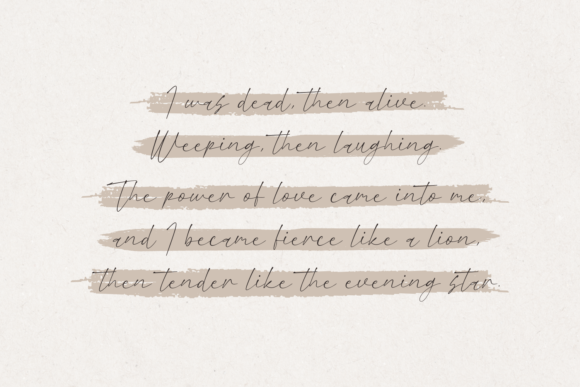 I was dead, then alive.
Weeping, then laughing.
The power of love came into me,
and I became fierce like a lion,
then tender like the evening star.